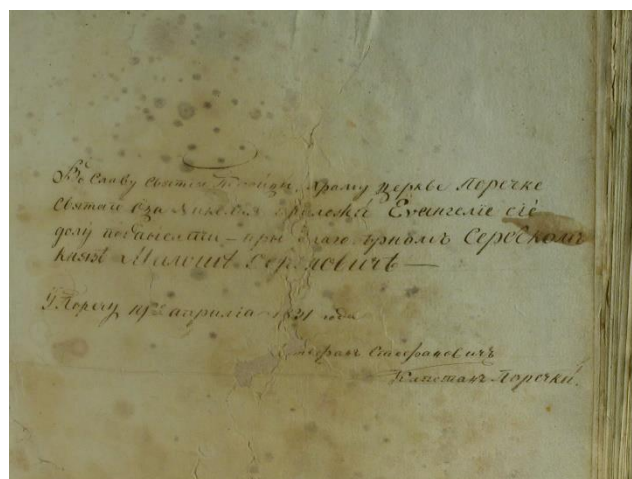 Во Славу Святыя Троицы, храму церкве Поречке
Святаго Оца Николая приложи Евангелiе сiе
долу подписати – при благовѣрномъ Сербскомъ
князѣ Милошѣ
У Поречу 19 априлiа 1831 года
Стефанъ Стефановичъ
Капетанъ Поречки.